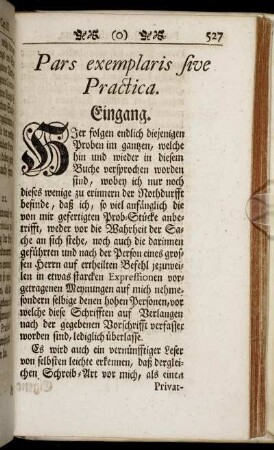 (0) 527
Pars exemplaris sive
Practica.
Eingang.
HJer folgen endlich diejenigen
Proben im gantzen, welche
hin und wieder in diesem
Buche versprochen worden
sind, wobey ich nur noch
dieses wenige zu erinnern der Nothdurfft
befinde, daß ich, so viel anfänglich die
von mir gefertigten Prob-Stücke anbe-
trifft, weder vor die Wahrheit der Sa-
che an sich stehe, noch auch die darinnen
geführten und nach der Person eines gros-
sen Herrn auf ertheilten Befehl jezuwei-
len in etwas starcken Expressionen vor-
getragenen Meynungen auf mich nehme,
sondern selbige denen hohen Personen, vor
welche diese Schrifften auf Verlangen
nach der gegebenen Vorschrifft verfasset
worden sind, lediglich überlasse.
Es wird auch ein vernünfftiger Leser
von selbsten leichte erkennen, daß derglei-
chen Schreib-Art vor mich, als einen
Privat-